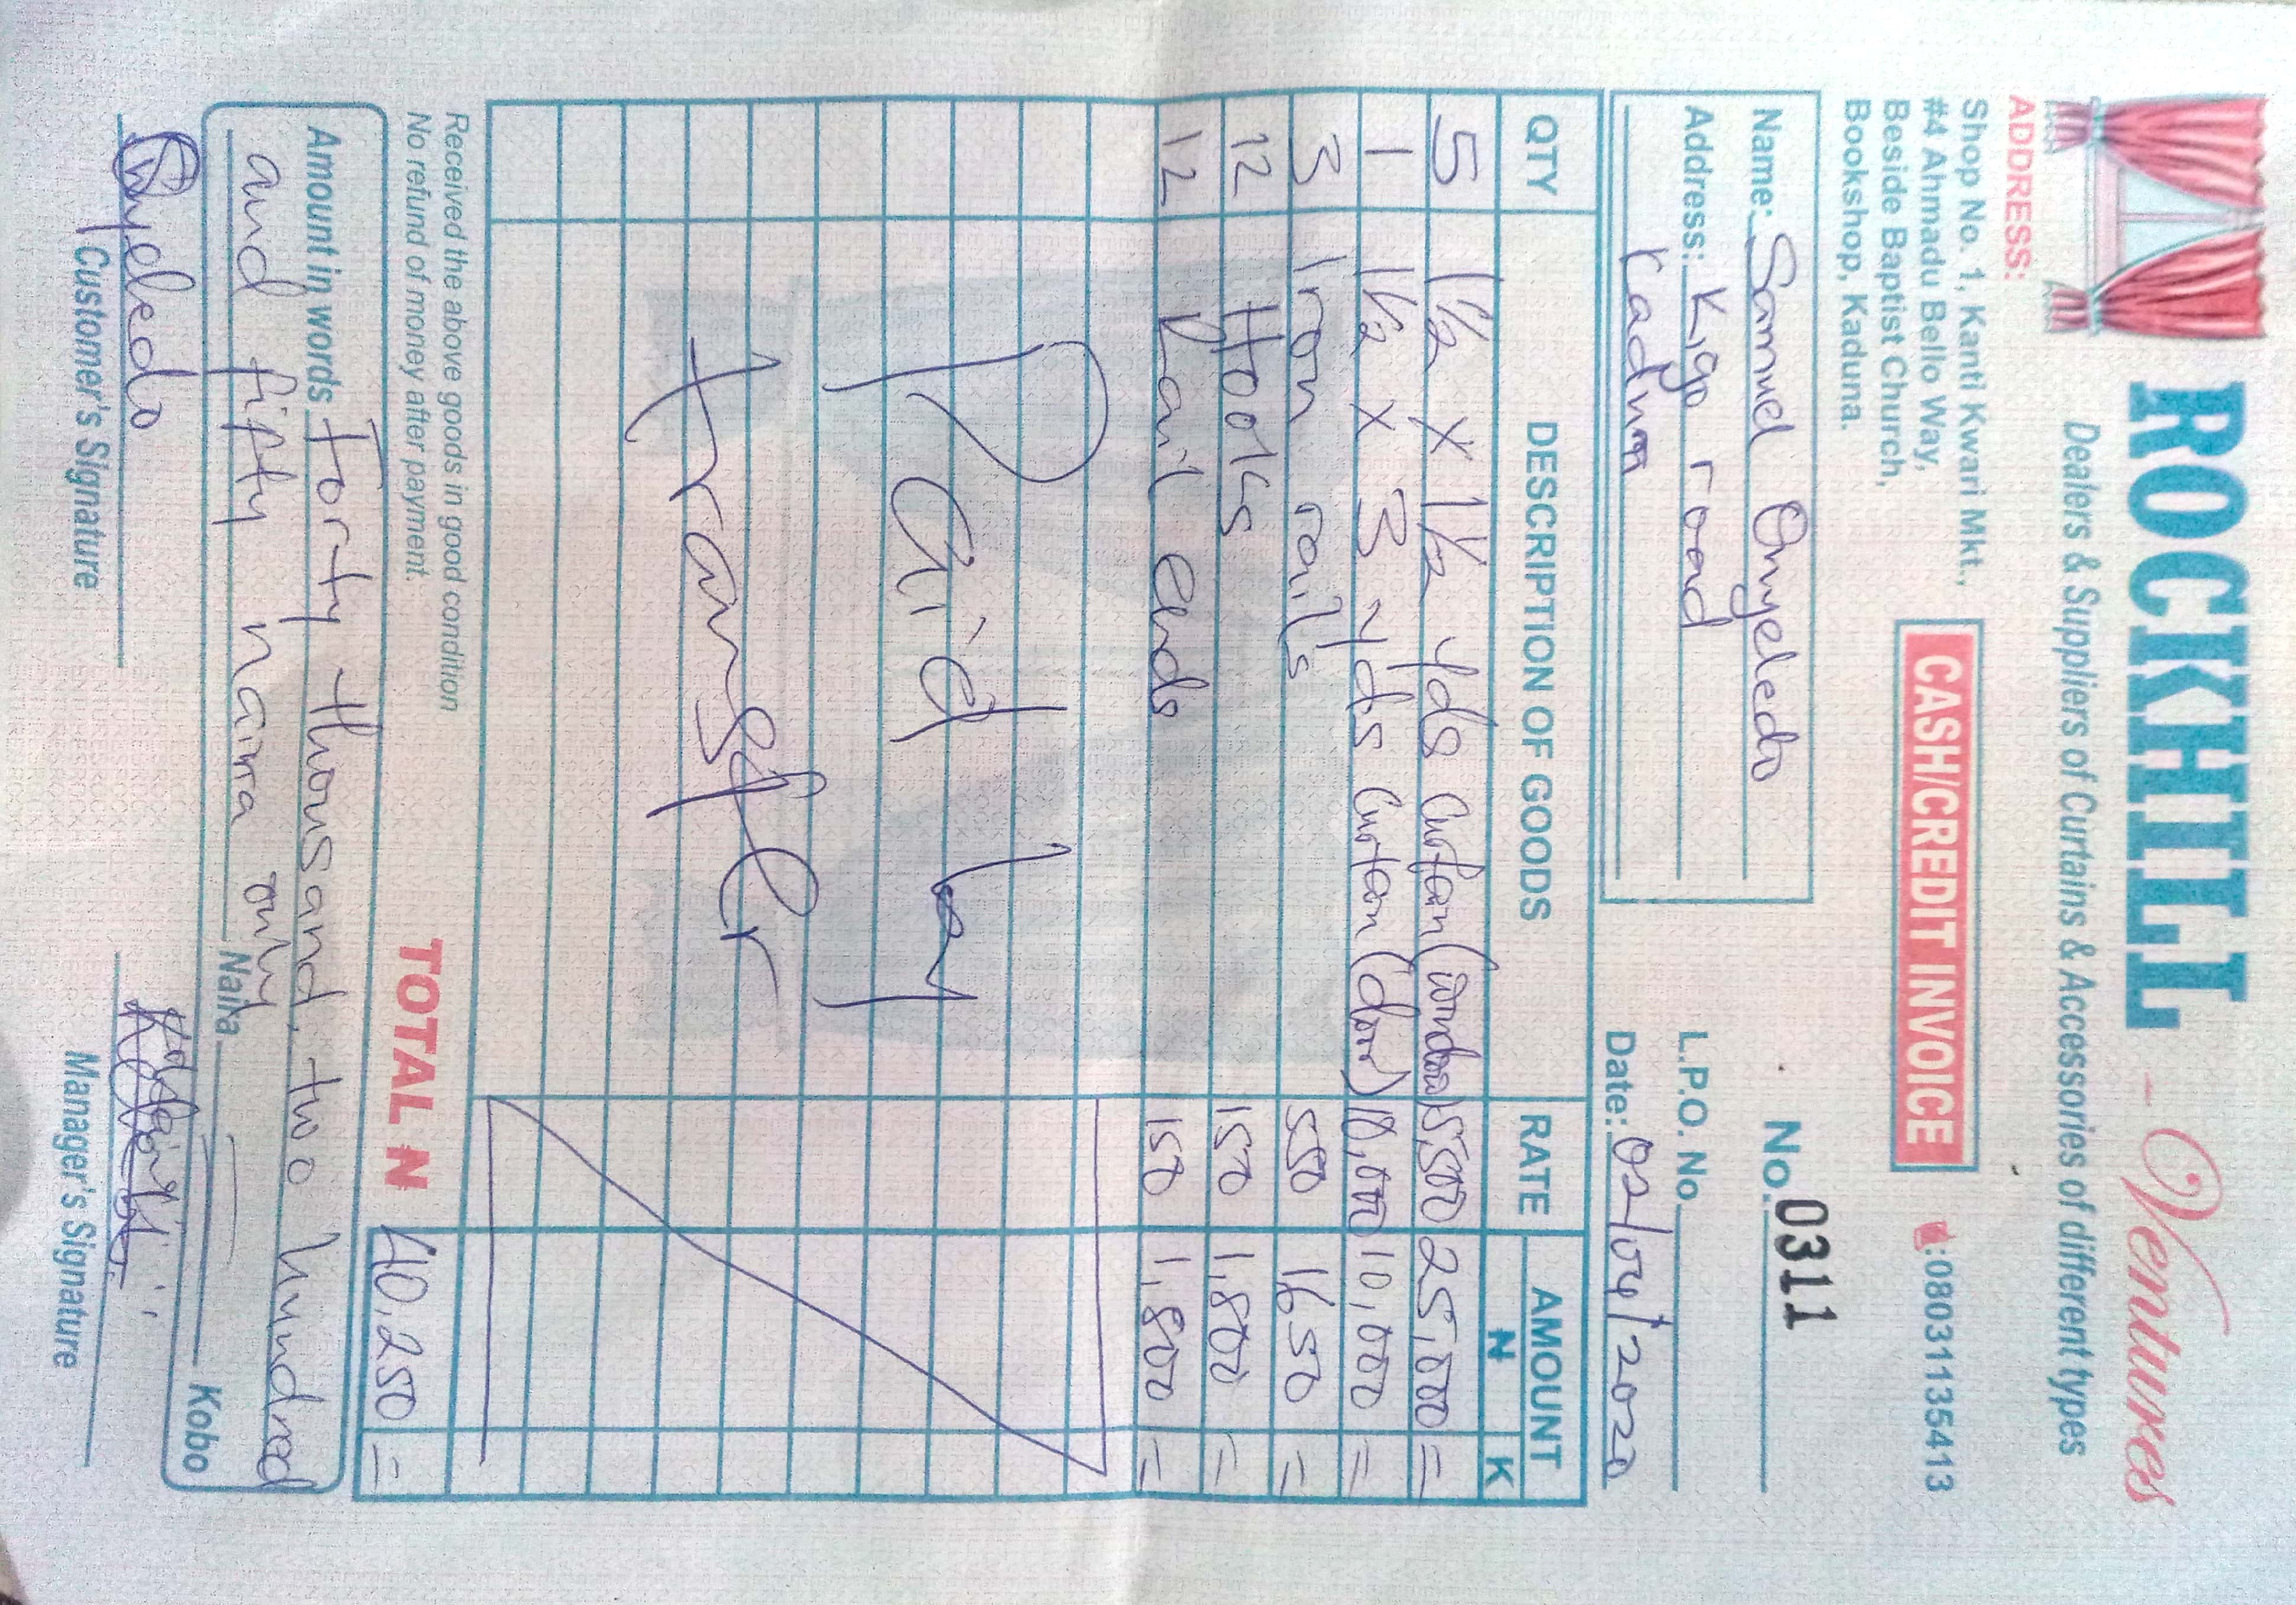 ROCKHILL - Ventures
Dealers & Suppliers of Curtains & Accessories of different types
ADDRESS:
Shop No. 1, Kanti Kwari Mkt.,
#4 Ahmadu Bello Way,
Beside Baptist Church,
Bookshop, Kaduna.
CASH/CREDIT INVOICE
:08031135413
No. 0311
Name: Samuel Onyeledo
Address: Kigo road
Kaduna
L.P.O. No
Date: 02/04/2020
QTY DESCRIPTION OF GOODS RATE AMOUNT
₦ K
5 1½ x 1½ yds Curtain (window) 5,500 25,000 =
1 1½ x 3 yds Curtain (door) 10,000 10,000 =
3 Iron rails 550 1650 =
12 Hooks 150 1,800 =
12 Rail ends 150 1,800 =
Paid by
transfer
Received the above goods in good condition
No refund of money after payment.
TOTAL ₦ 40,250 =
Amount in words Forty thousand, two hundred
and fifty naira only
Naira Kobo
Onyeledo
Customer's Signature
Manager's Signature